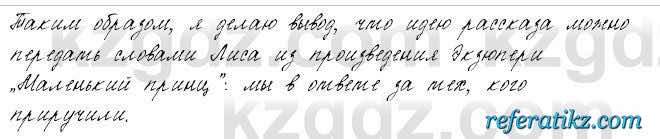 Таким образом, я делаю вывод, что идею рассказа можно
передать словами Лиса из произведения Экзюпери
„Маленький принц": мы в ответе за тех, кого
приручили.
kzgdz.com
referatikz.com